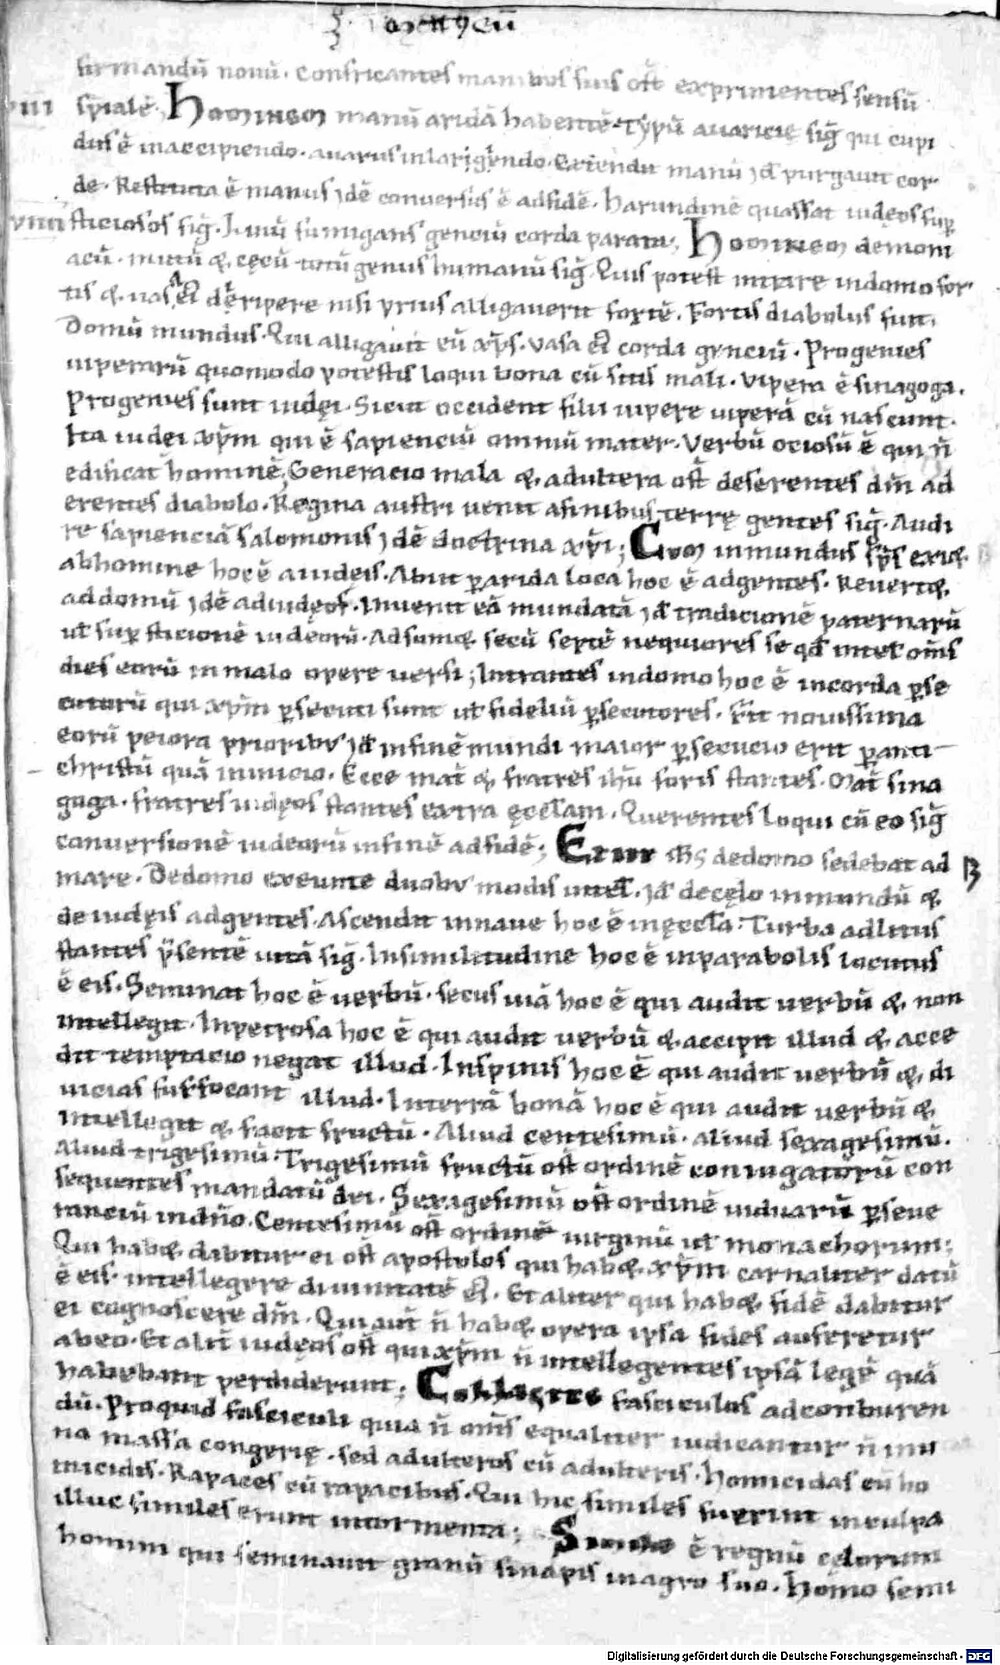 firmandū novū. Confricantes manibus suis oſt exprimentes sensū
VIII sp̄ialē; Hominem manū aridā habentē. Typū avaricie siḡ qui cupi
dus ē inaccipiendo. avarus inlargiendo. Extendit manū id purgavit cor
de. Restituta ē manus idē conversus ē adfidē. harundinē quassat iudęos sup̄
VIIII sticiosos siḡ. Linū fumigans genciū corda parata; Hominem demoni
acū. mutū & cęcū totū genus humanū siḡ. Quis potest intrare indomo for
tis & vasa ei' deripere nisi prius alligaverit fortē. Fortis diabolus sunt.
Domū mundus. Qui alligavit eū xp̄s. Vasa ei' corda genciū. Progenies
viperarū quomodo potestis loqui bona cū sitis mali. Vipera ē sinagoga.
Progenies sunt iudęi. Sicut occident filii vipere viperā cū nascunt.
Ita iudęi xp̄m qui ē sapienciū omniū mater. Verbū ociosū ē qui n̄
edificat hominē; Generacio mala & adultera oſt deserentes dn̄m ad
erentes diabolo. Regina austri venit afinibus terrę gentes siḡ. Audi
re sapienciā salomonis idē doctrina xp̄i; Cum inmundus sp̄s exi&
abhomine hoc ē aiudeis. Abiit p̄ arida loca hoc ē adgentes. Revert&
addomū idē adiudęos. Invenit eā mundatā id tradicionē paternarū
ut̄ sup̄sticionē iudeorū. Adsum& secū septē nequiores se qd̄ intel̄ om̄s
dies eorū inmalo opere versi; Intrantes indomo hoc ē incorda p̄se
cutorū qui xp̄m p̄secuti sunt ut̄ fideliū p̄secutores. Fit novissima
eorū peiora prioribus id infinē mundi maior p̄secucio erit p̄ anti
christū quā ininicio. Ecce mat̄ & fratres ih̄u foris stantes. Mat̄ sina
goga. fratres iudęos stantes extra ęccl̄am. Querentes loqui cū eo siḡ
conversionē iudeorū infinē adfidē; Exiit ih̄s dedomo sedebat ad
mare. Dedomo exeunte duobus modis intel̄. Id decęlo inmundū &
de iudęis adgentes. Ascendit innave hoc ē inęccl̄a. Turba adlitus
stantes p̄sentē vitā siḡ. Insimilitudine hoc ē inparabolis locutus
ē eis. Seminat hoc ē verbū. secus viā hoc ē qui audit verbū & non
intellegit. Inpetrosa hoc ē qui audit verbū & accipit illud & acce
dit temptacio negat illud. Inspinis hoc ē qui audit verbū & di
vicias suffocant illud. Interrā bonā hoc ē qui audit verbū &
intellegit & facit fructū. Aliud centesimū. aliud sexagesimū.
Aliud trigesimū. Trigesimū fructū oſt ordinē coniugatorū con
sequentes mandatū dei. Sexagesimū oſt ordinē viduarū p̄seve
ranciū indn̄o. Centesimū oſt ordinē virginū ut̄ monachorum;
Qui hab& dabitur ei oſt apostolos qui hab& xp̄m carnaliter datū
ē eis intellegere divinitatē ei'. Et aliter qui hab& fidē dabitur
ei cognoscere dn̄m. Qui aut̄ n̄ hab& opera ipsa fides auferetur
abeo. Et alit̄ iudęos oſt qui xp̄m n̄ intellegentes ipsā legē quā
habebant perdiderunt; Colligite fasciculos adconburen
dū. Proquid fasciculi quia n̄ om̄s equaliter iudicantur n̄ inu
na massa congerię. sed adulteros cū adulteris. homicidas cū ho
micidis. Rapaces cū rapacibus. Qui hic similes fuerint inculpa
illuc similes erunt intormenta; Simile ē regnū cęlorum
homini qui seminavit granū sinapis inagro suo. Homo semi
B
Digitalisierung gefördert durch die Deutsche Forschungsgemeinschaft - DFG